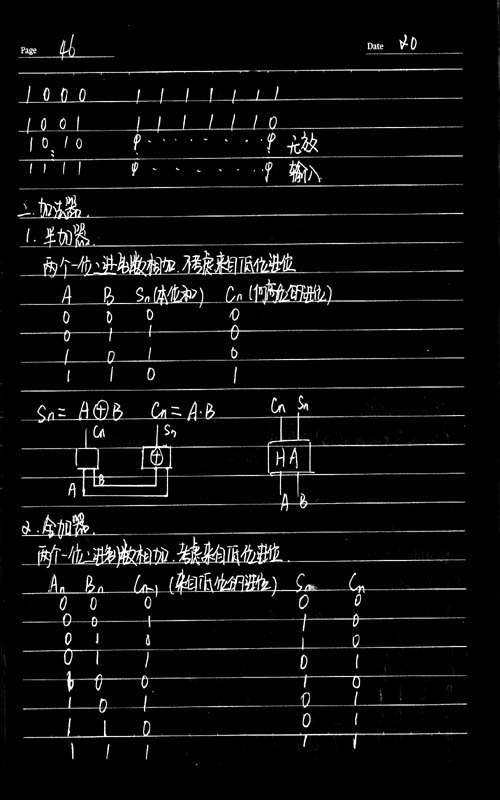 Page 46 Date 20
1 0 0 0 1 1 1 1 1 1 1
1 0 0 1 1 1 1 1 1 1 0
1 0 1 0 φ · · · · · · · φ 无效
1 1 1 1 φ · · · · · · · φ 输入
二. 加法器.
1. 半加器.
两个一位二进制数相加. 不考虑来自低位进位
A B Sn (本位和) Cn (向高位的进位)
0 0 0 0
0 1 1 0
1 0 1 0
1 1 0 1
Sn = A ⊕ B Cn = A·B
Cn Sn
Cn Sn
⊕
HA
A B
A B
2. 全加器.
两个一位二进制数相加. 考虑来自低位进位.
An Bn Cn-1 (来自低位的进位) Sn Cn
0 0 0 0 0
0 0 1 1 0
0 1 0 1 0
0 1 1 0 1
1 0 0 1 0
1 0 1 0 1
1 1 0 0 1
1 1 1 1 1